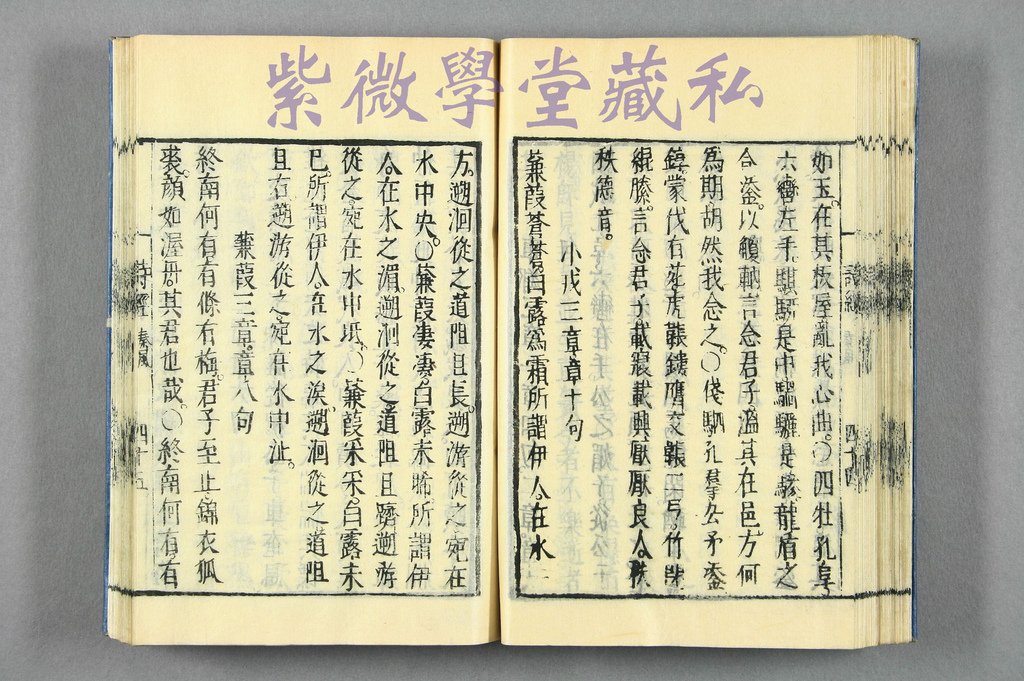 紫微學堂藏私
詩經
四十四
如玉。在其板屋亂我心曲。〇四牡孔阜
六轡左手騏駵是中騧驪是驂龍盾之
合。鋈以觼軜言念君子溫其在邑。方何
為期胡然我念之。〇俴駟孔羣厹矛鋈
錞。蒙伐有苑虎韔鏤膺交韔二弓。竹閉
緄縢。言念君子載寢載興厭厭良人。秩
秩德音。
小戎三章章十句
蒹葭蒼蒼白露為霜所謂伊人。在水一
方。遡洄從之道阻且長。遡游從之宛在
水中央。〇蒹葭凄凄白露未晞所謂伊
人。在水之湄。遡洄從之道阻且躋遡游
從之宛在水中坻。〇蒹葭采采白露未
已。所謂伊人。在水之涘。遡洄從之道阻
且右遡游從之。宛在水中沚。
蒹葭三章章八句
終南何有有條有梅。君子至止錦衣狐
裘。顏如渥丹其君也哉。〇終南何有。有
詩經 秦風
四十五